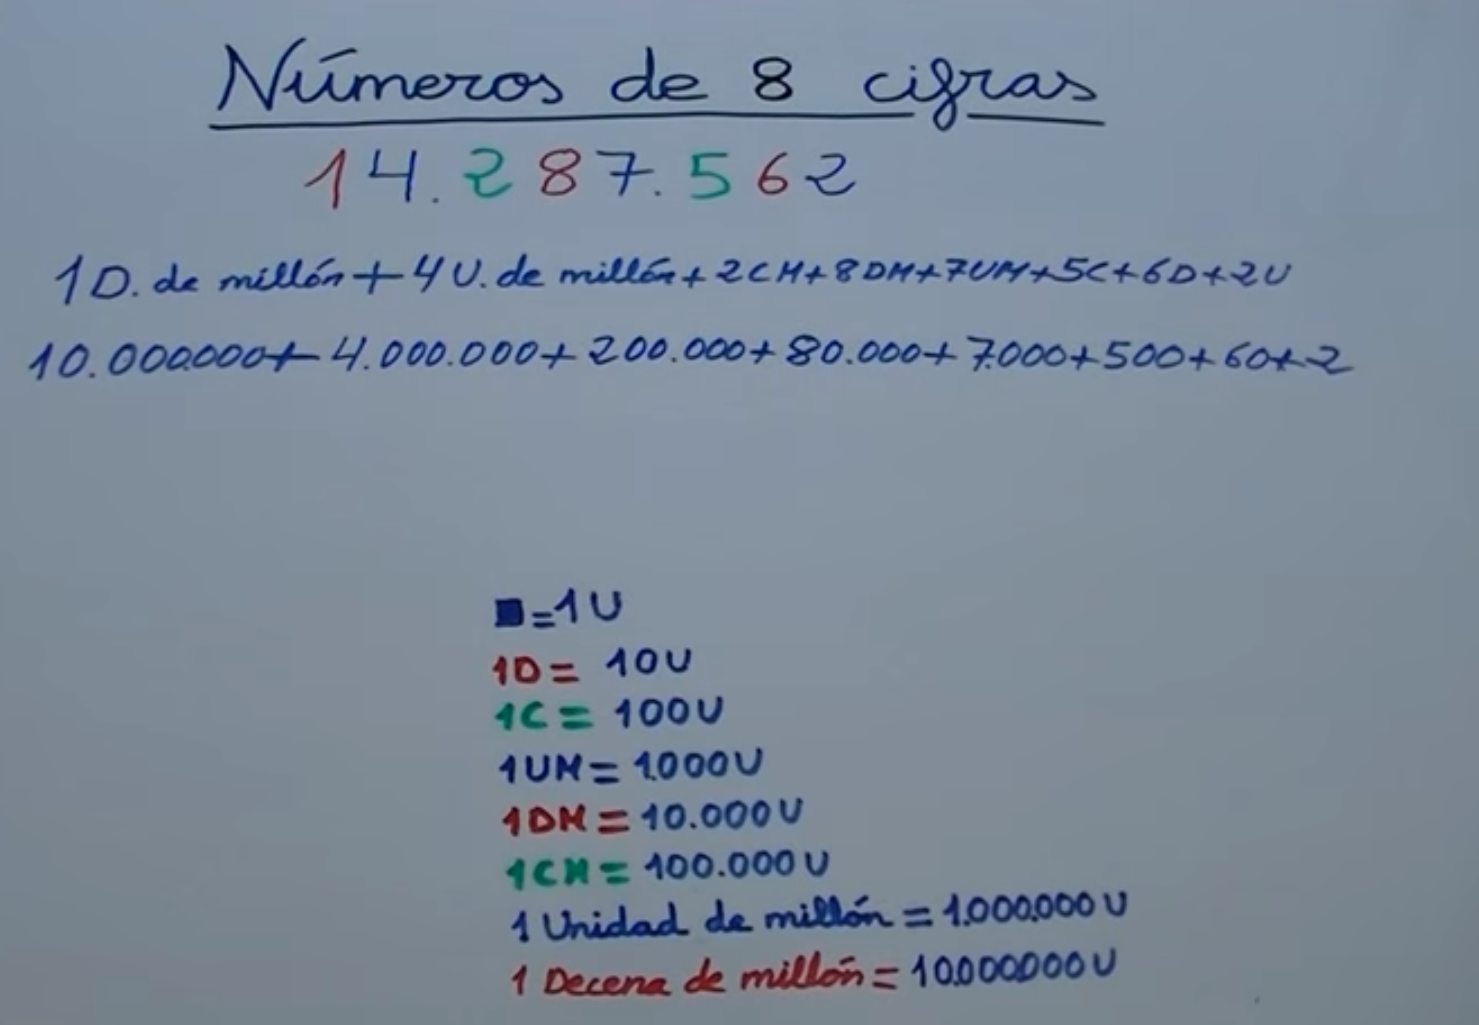 Números de 8 cifras
14.287.562
1D. de millón + 4U. de millón + 2CM + 8DM + 7UM + 5C + 6D + 2U
10.000.000 + 4.000.000 + 200.000 + 80.000 + 7.000 + 500 + 60 + 2
= 1U
1D = 10U
1C = 100U
1UM = 1.000U
1DM = 10.000U
1CM = 100.000U
1 Unidad de millón = 1.000.000U
1 Decena de millón = 10.000.000U